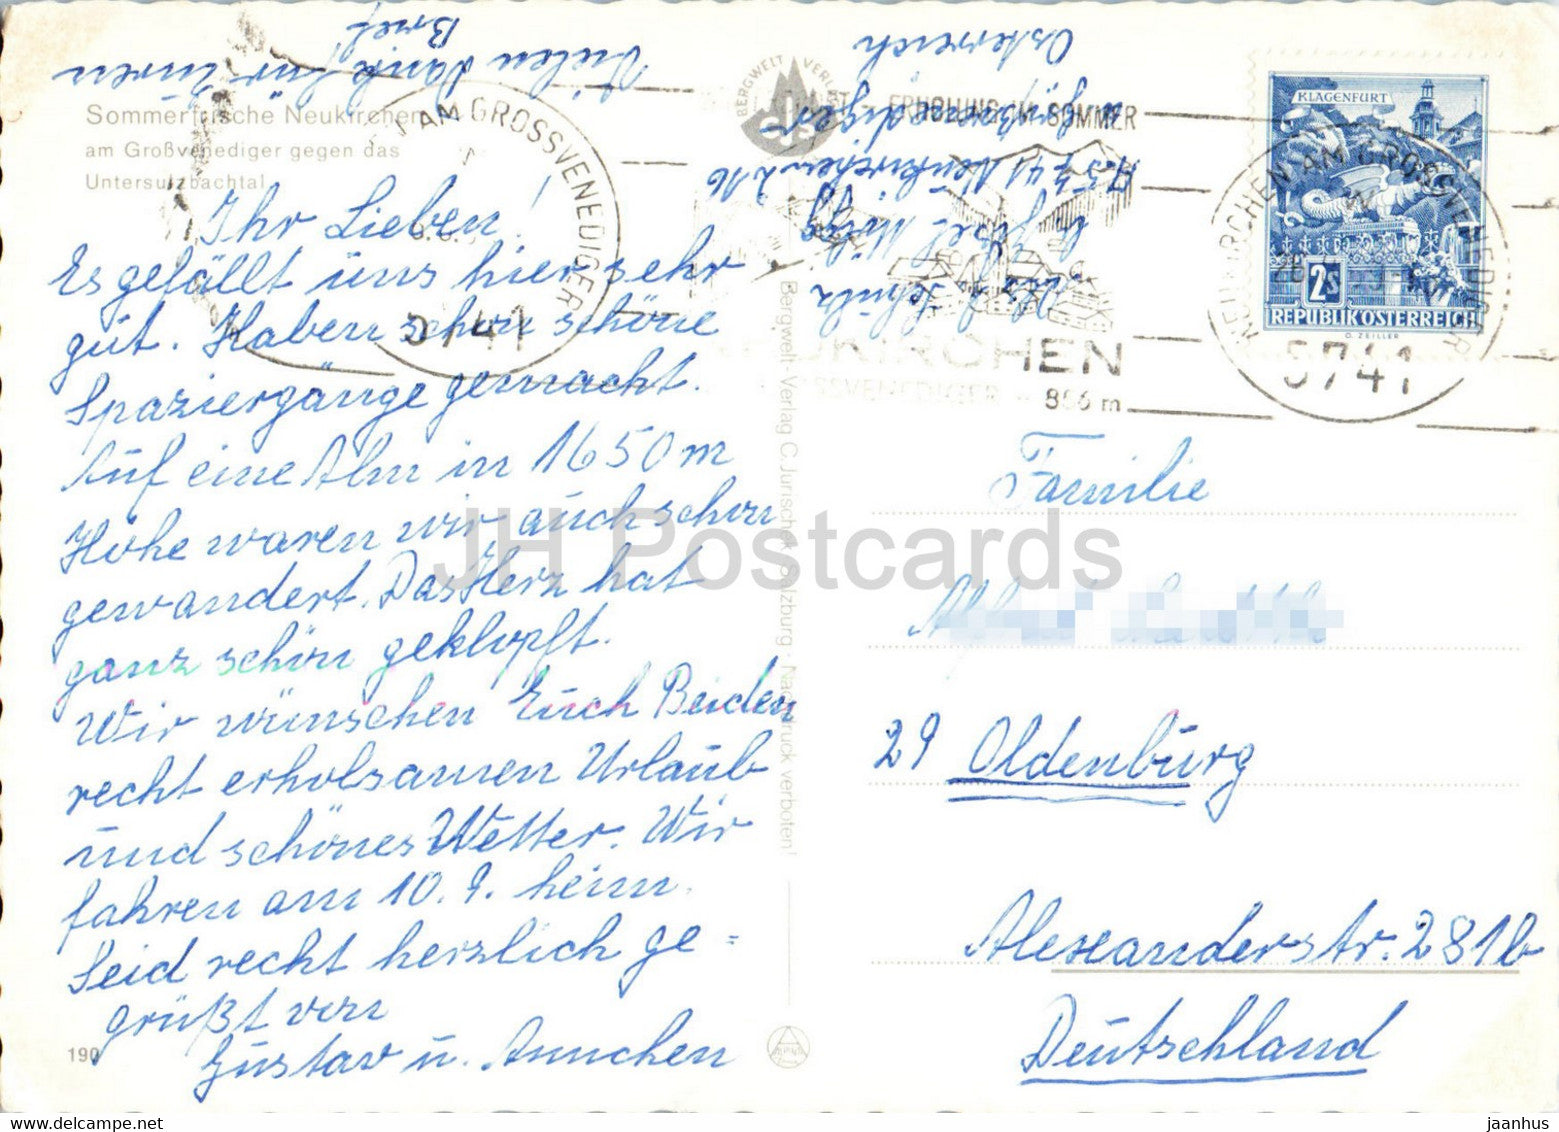 Sommerfrische Neukirchen
am Großvenediger gegen das
Untersulzbachtal
Ihr Lieben!
Es gefällt uns hier sehr
gut. Haben schon schöne
Spaziergänge gemacht.
Auf eine Alm in 1650 m
Höhe waren wir auch schon
gewandert. Das Herz hat
ganz schön geklopft.
Wir wünschen Euch Beiden
recht erholsamen Urlaub
und schönes Wetter. Wir
fahren am 10.9. heim.
Seid recht herzlich ge=
grüßt von
Gustav u. Annchen
190
Vielen Dank für Euren
Brief
A 5741 Neukirchen 216
a. Großvenediger
Österreich
AM GROSSVENEDIGER
5741
BERGWELT VERLAG
CJS
Bergwelt-Verlag C. Jurischek, Salzburg - Nachdruck verboten!
ERHOLUNG IM SOMMER
NEUKIRCHEN
GROSSVENEDIGER
866 m
KLAGENFURT
2S
REPUBLIK ÖSTERREICH
O. ZEILLER
NEUKIRCHEN AM GROSSVENEDIGER
5741
Familie
29 Oldenburg
Alexanderstr. 281b
Deutschland
JH Postcards
www.delcampe.net
jaanhus